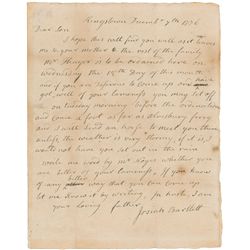 Kingstown Decemb.r 9th 1776
Dear Son
I hope this will find you well as it leaves
me & your mother & the rest of the family
Mr Thayer is to be ordained here on
Wednesday the 18th Day of this month
and if you are Desirous to come up and have
got well of your lameness you may set off
on tuesday morning before the ordination
and come a foot as far as Almsbury ferry
and I will send an horse to meet you there
unless the weather is very Stormy, if it is, I
would not have you set out in the rain
write me word by Mr Noyes whether you
are better of your lameness, if you know
of any better way that you can come up
let me know it by writing, in haste, I am
your loving father
Josiah Bartlett